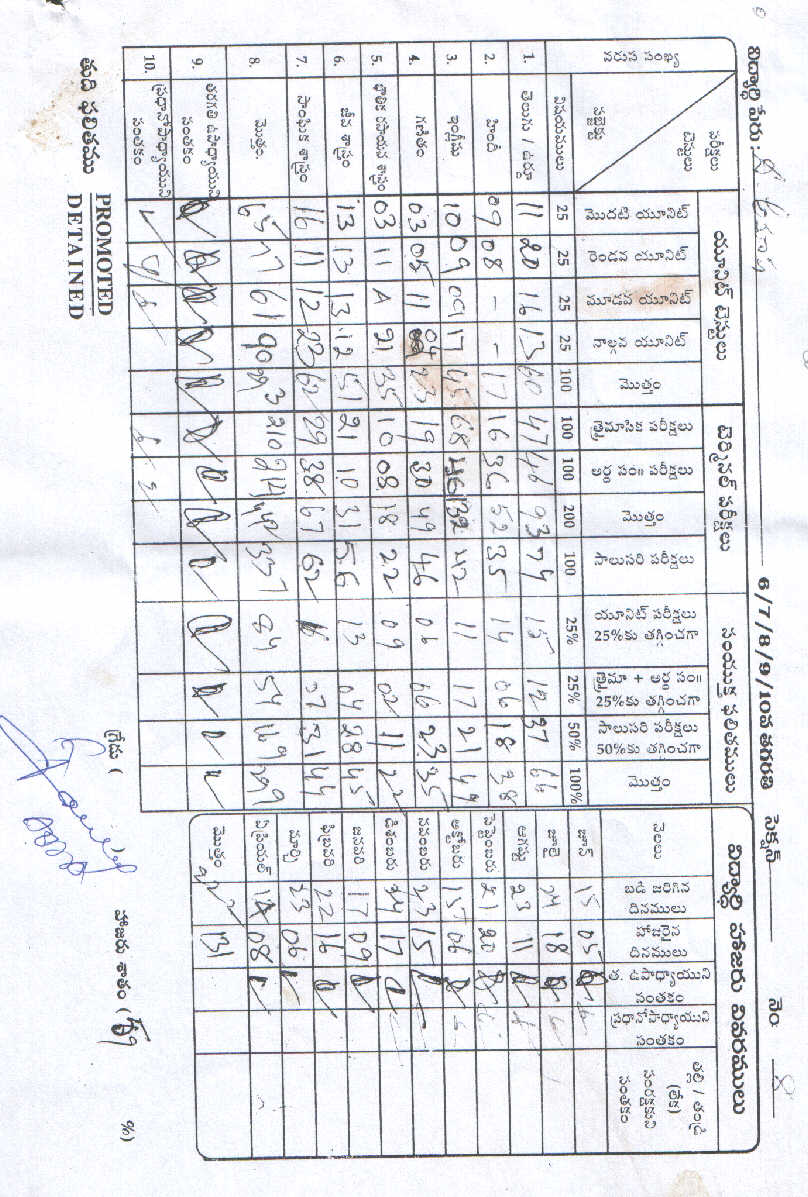 విద్యార్థి పేరు :
6/7/8/9/10వ తరగతి సెక్షన్ నెం 8
వరుస సంఖ్య
పరీక్షలు
టెస్టులు
సబ్జెక్టు
విషయములు
యూనిట్ టెస్టులు
టెర్మినల్ పరీక్షలు
సంయుక్త ఫలితములు
మొదటి యూనిట్ రెండవ యూనిట్ మూడవ యూనిట్ నాల్గవ యూనిట్ మొత్తం త్రైమాసిక పరీక్షలు అర్ధ సం॥ పరీక్షలు మొత్తం సాలుసరి పరీక్షలు యూనిట్ పరీక్షలు 25%కు తగ్గించగా త్రైమా + అర్ధ సం॥ 25%కు తగ్గించగా సాలుసరి పరీక్షలు 50%కు తగ్గించగా మొత్తం
25 25 25 25 100 100 100 200 100 25% 25% 50% 100%
1. తెలుగు / ఉర్దూ 11 20 16 13 60 47 46 93 79 15 12 37 64
2. హిందీ 09 08 - - 17 16 36 52 35 14 06 18 38
3. ఇంగ్లీషు 10 09 09 17 45 68 132 42 11 17 21 49
4. గణితం 03 05 11 04 23 19 30 49 46 06 06 23 35
5. భౌతిక రసాయన శాస్త్రం 03 11 A 21 35 10 08 18 22 09 02 11 22
6. జీవ శాస్త్రం 13 13 13 12 51 21 10 31 56 13 04 28 45
7. సాంఘిక శాస్త్రం 16 11 12 23 62 29 38 67 62 16 07 31 44
8. మొత్తం 65 77 61 90 293 210 337 84 54 169 299
9. తరగతి ఉపాధ్యాయుని సంతకం
10. ప్రధానోపాధ్యాయుని సంతకం
తుది ఫలితము
PROMOTED
DETAINED
గ్రేడు ( )
హాజరు శాతం ( 59 %)
విద్యార్థి హాజరు వివరములు
నెలలు
బడి జరిగిన దినములు
హాజరైన దినములు
త. ఉపాధ్యాయుని సంతకం
ప్రధానోపాధ్యాయుని సంతకం
తల్లి / తండ్రి (లేక) సంరక్షకుని సంతకం
జూన్ 15 05
జూలై 24 18
ఆగష్టు 23 11
సెప్టెంబరు 21 20
అక్టోబరు 15 06
నవంబరు 23 15
డిశంబరు 24 17
జనవరి 17 09
ఫిబ్రవరి 22 16
మార్చి 23 06
ఏప్రియల్ 08
మొత్తం 131